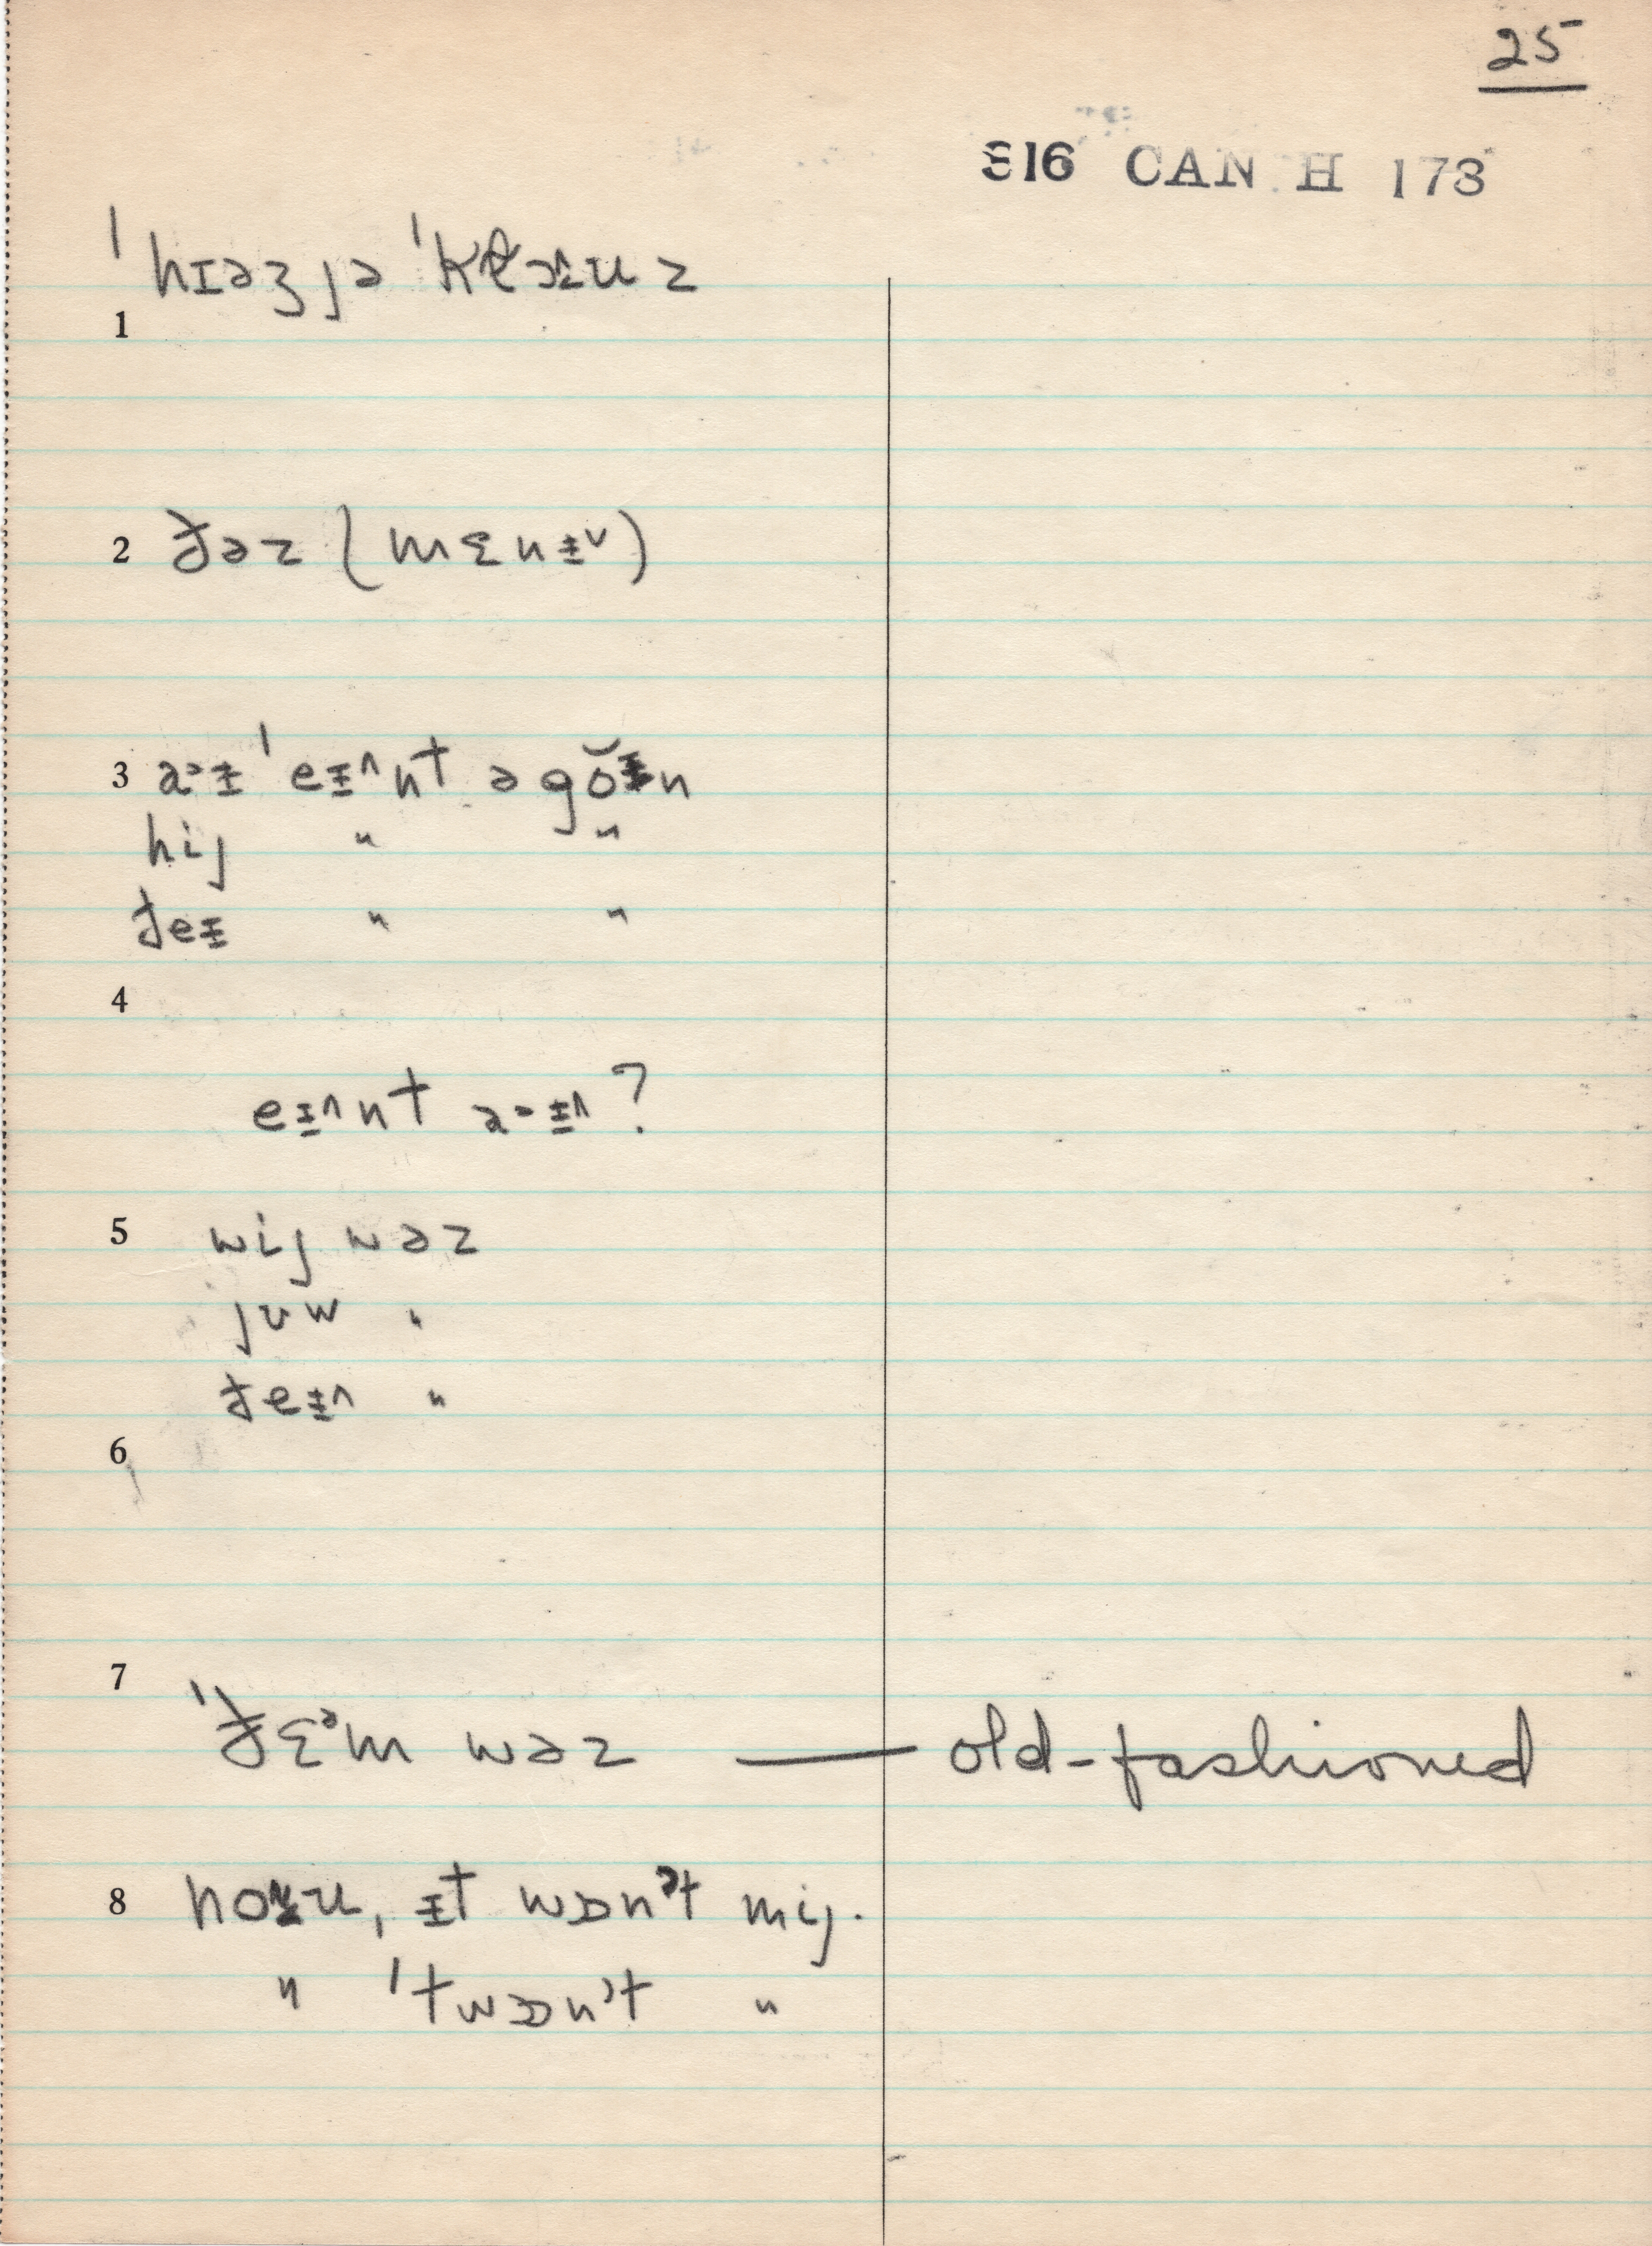 25
816 CAN H 173
ˈhɪəʒ jə ˈklozuz
1
2 ðəz (mɛnɨ˅)
3 a˃ɨ ˈeɨ˄nt ə gŏɨn
hij " "
ðeɨ " "
4
eɨ˄nt a˃ɨ˄?
5 wij wəz
jʊw "
ðeɨ˄ "
6
7
ˈðɛᵊm wəz — old-fashioned
8 noʉu, ɨt wɒnᵊt mij.
" ˈtwɒnᵊt "